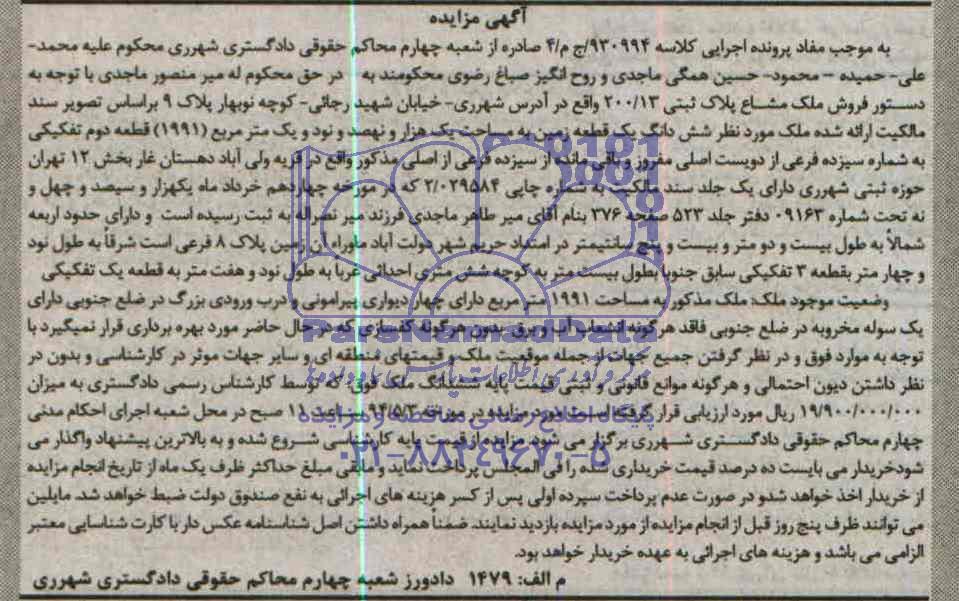 آگهی مزایده
به موجب مفاد پرونده اجرایی کلاسه ۹۳۰۹۹۴/ج م/۴ صادره از شعبه چهارم محاکم حقوقی دادگستری شهرری محکوم علیه محمد-
علی- حمیده - محمود- حسین همگی ماجدی و روح انگیز صباغ رضوی محکومند به در حق محکوم له میر منصور ماجدی با توجه به
دستور فروش ملک مشاع پلاک ثبتی ۲۰۰/۱۳ واقع در آدرس شهرری- خیابان شهید رجائی- کوچه نوبهار پلاک ۹ براساس تصویر سند
مالکیت ارائه شده ملک مورد نظر شش دانگ یک قطعه زمین به مساحت یک هزار و نهصد و نود و یک متر مربع (۱۹۹۱) قطعه دوم تفکیکی
به شماره سیزده فرعی از دویست اصلی مفروز و باقی مانده از سیزده فرعی از اصلی مذکور واقع در قریه ولی آباد دهستان غار بخش ۱۲ تهران
حوزه ثبتی شهرری دارای یک جلد سند مالکیت به شماره چاپی ۲/۰۲۹۵۸۴ که در مورخه چهاردهم خرداد ماه یکهزار و سیصد و چهل و
نه تحت شماره ۰۹۱۶۳ دفتر جلد ۵۲۳ صفحه ۳۷۶ بنام آقای میر طاهر ماجدی فرزند میر نصراله به ثبت رسیده است و دارای حدود اربعه
شمالاً به طول بیست و دو متر و بیست و پنج سانتیمتر در امتداد حریم شهر دولت آباد ماوراء آن زمین پلاک ۸ فرعی است شرقاً به طول نود
و چهار متر بقطعه ۳ تفکیکی سابق جنوبا بطول بیست متر به کوچه شش متری احداثی غربا به طول نود و هفت متر به قطعه یک تفکیکی
وضعیت موجود ملک: ملک مذکور به مساحت ۱۹۹۱ متر مربع دارای چهار دیواری پیرامونی و درب ورودی بزرگ در ضلع جنوبی دارای
یک سوله مخروبه در ضلع جنوبی فاقد هرگونه انشعاب آب و برق بدون هرگونه کفسازی که در حال حاضر مورد بهره برداری قرار نمیگیرد با
توجه به موارد فوق و در نظر گرفتن جمیع جهات از جمله موقعیت ملک و قیمتهای منطقه ای و سایر جهات موثر در کارشناسی و بدون در
نظر داشتن دیون احتمالی و هرگونه موانع قانونی و ثبتی قیمت پایه ششدانگ ملک فوق، که توسط کارشناس رسمی دادگستری به میزان
۱۹/۹۰۰/۰۰۰/۰۰۰ ریال مورد ارزیابی قرار گرفته است مورد مزایده در مورخه ۹۴/۵/۳ ساعت ۱۱ صبح در محل شعبه اجرای احکام مدنی
چهارم محاکم حقوقی دادگستری شهرری برگزار می شود. مزایده از قیمت پایه کارشناسی شروع شده و به بالاترین پیشنهاد واگذار می
شودخریدار می بایست ده درصد قیمت خریداری شده را فی المجلس پرداخت نماید و مابقی مبلغ حداکثر ظرف یک ماه از تاریخ انجام مزایده
از خریدار اخذ خواهد شدو در صورت عدم پرداخت سپرده اولی پس از کسر هزینه های اجرائی به نفع صندوق دولت ضبط خواهد شد. مایلین
می توانند ظرف پنج روز قبل از انجام مزایده از مورد مزایده بازدید نمایند. ضمناً همراه داشتن اصل شناسنامه عکس دار با کارت شناسایی معتبر
الزامی می باشد و هزینه های اجرائی به عهده خریدار خواهد بود.
م الف: ۱۴۷۹ دادورز شعبه چهارم محاکم حقوقی دادگستری شهرری
ParsNamadData
پایگاه اطلاع رسانی مناقصه و مزایده
۰۲۱-۸۸۳۴۹۶۷۰-۵